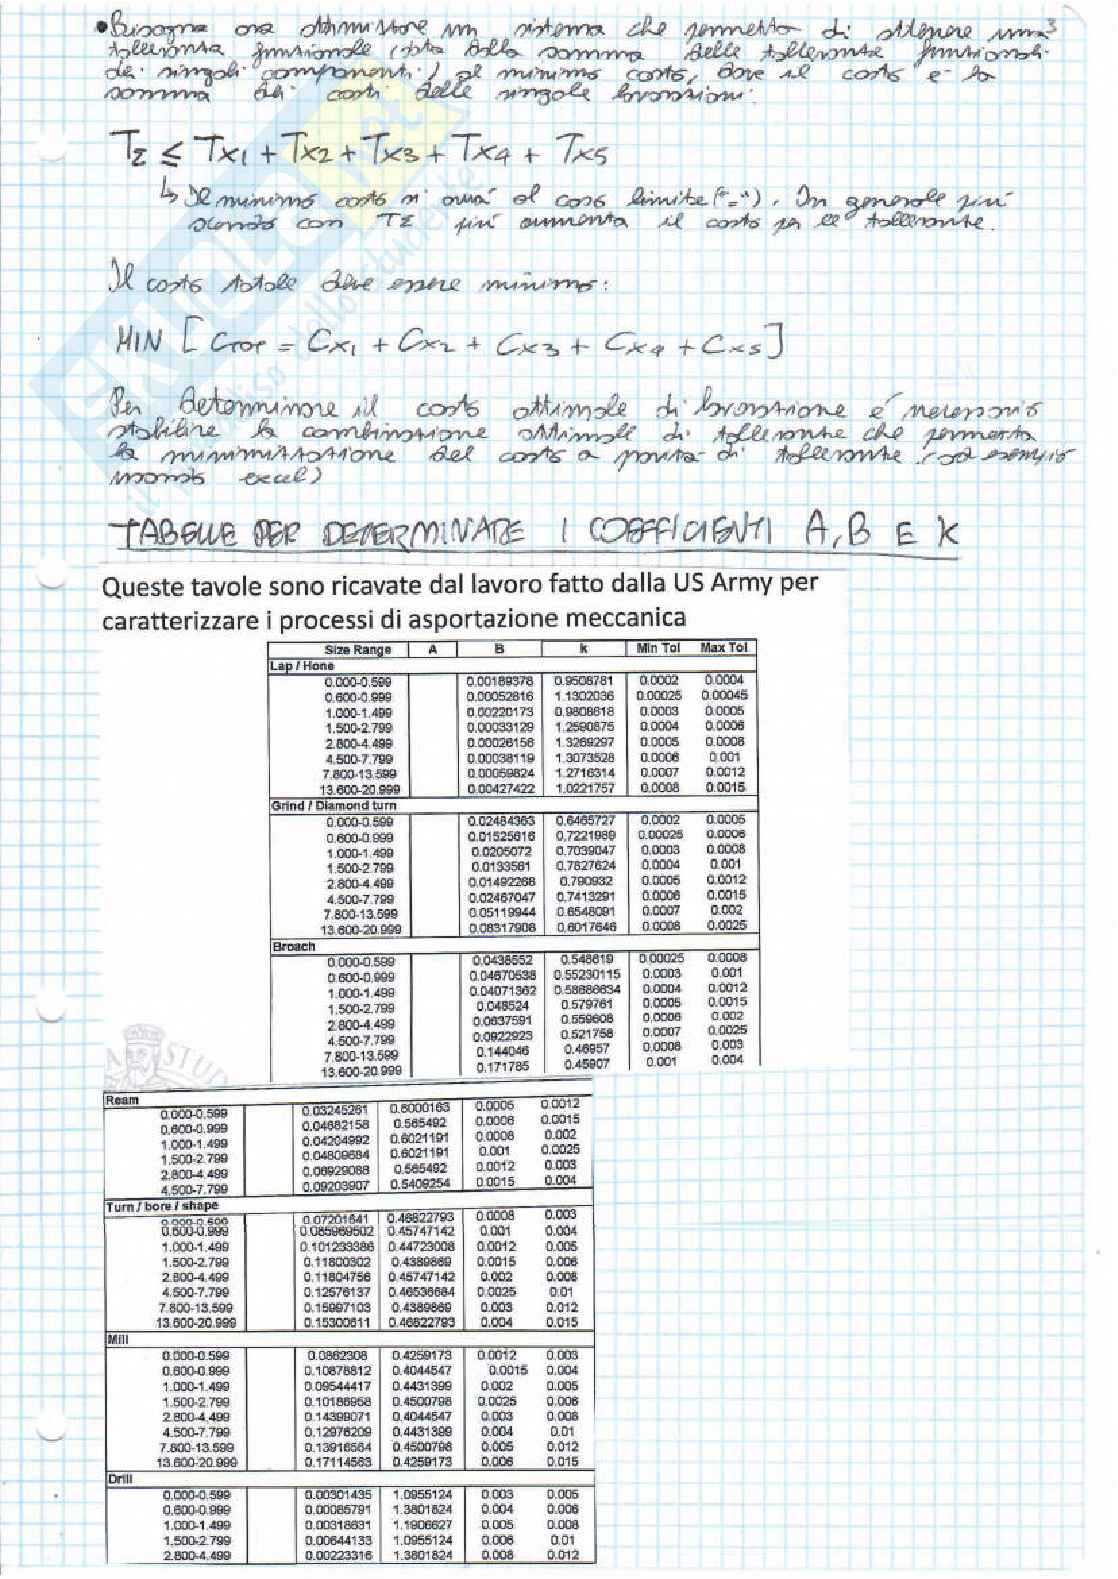 • Bisogna ora ottimizzare un sistema che permetta di ottenere una 3
tolleranza funzionale (data dalla somma delle tolleranze funzionali
dei singoli componenti) al minimo costo, dove il costo è la
somma dei costi delle singole lavorazioni:
TΣ ≤ Tx1 + Tx2 + Tx3 + Tx4 + Tx5
↳ Il minimo costo si avrà al caso limite ("="). In generale più
scendo con TΣ più aumenta il costo per le tolleranze.
Il costo totale deve essere minimo:
MIN [CTOT = Cx1 + Cx2 + Cx3 + Cx4 + Cx5]
Per determinare il costo ottimale di lavorazione è necessario
stabilire la combinazione ottimale di tolleranze che permetta
la minimizzazione del costo a parità di tolleranze (ad esempio
excel)
TABELLE PER DETERMINARE I COEFFICIENTI A, B E K
Queste tavole sono ricavate dal lavoro fatto dalla US Army per
caratterizzare i processi di asportazione meccanica
Size Range A B k Min Tol Max Tol
Lap / Hone
0.000-0.599 0.00189378 0.9508781 0.0002 0.0004
0.600-0.999 0.00052816 1.1302036 0.00025 0.00045
1.000-1.499 0.00220173 0.9808618 0.0003 0.0005
1.500-2.799 0.00033129 1.2590875 0.0004 0.0006
2.800-4.499 0.00026156 1.3269297 0.0005 0.0008
4.500-7.799 0.00038119 1.3073528 0.0006 0.001
7.800-13.599 0.00059824 1.2716314 0.0007 0.0012
13.600-20.999 0.00427422 1.0221757 0.0008 0.0015
Grind / Diamond turn
0.000-0.599 0.02484363 0.6465727 0.0002 0.0005
0.600-0.999 0.01525616 0.7221989 0.00025 0.0006
1.000-1.499 0.0205072 0.7039047 0.0003 0.0008
1.500-2.799 0.0133561 0.7827624 0.0004 0.001
2.800-4.499 0.01492268 0.790932 0.0005 0.0012
4.500-7.799 0.02467047 0.7413291 0.0006 0.0015
7.800-13.599 0.05119944 0.6548091 0.0007 0.002
13.600-20.999 0.08317908 0.6017646 0.0008 0.0025
Broach
0.000-0.599 0.0438552 0.548619 0.00025 0.0008
0.600-0.999 0.04670538 0.55230115 0.0003 0.001
1.000-1.499 0.04071362 0.58686634 0.0004 0.0012
1.500-2.799 0.048524 0.579761 0.0005 0.0015
2.800-4.499 0.0637591 0.559608 0.0006 0.002
4.500-7.799 0.0922923 0.521758 0.0007 0.0025
7.800-13.599 0.144046 0.46957 0.0008 0.003
13.600-20.999 0.171785 0.45907 0.001 0.004
Ream
0.000-0.599 0.03245261 0.6000163 0.0005 0.0012
0.600-0.999 0.04682158 0.565492 0.0006 0.0015
1.000-1.499 0.04204992 0.6021191 0.0008 0.002
1.500-2.799 0.04809684 0.6021191 0.001 0.0025
2.800-4.499 0.06929088 0.565492 0.0012 0.003
4.500-7.799 0.09203907 0.5409254 0.0015 0.004
Turn / bore / shape
0.07201641 0.46822793 0.0008 0.003
0.600-0.999 0.085969502 0.45747142 0.001 0.004
1.000-1.499 0.101233386 0.44723008 0.0012 0.005
1.500-2.799 0.11800302 0.4389869 0.0015 0.006
2.800-4.499 0.11804756 0.45747142 0.002 0.008
4.500-7.799 0.12576137 0.46536684 0.0025 0.01
7.800-13.599 0.15997103 0.4389869 0.003 0.012
13.600-20.999 0.15300611 0.46822793 0.004 0.015
Mill
0.000-0.599 0.0862308 0.4259173 0.0012 0.003
0.600-0.999 0.10878812 0.4044547 0.0015 0.004
1.000-1.499 0.09544417 0.4431399 0.002 0.005
1.500-2.799 0.10186958 0.4500798 0.0025 0.006
2.800-4.499 0.14399071 0.4044547 0.003 0.008
4.500-7.799 0.12976209 0.4431399 0.004 0.01
7.800-13.599 0.13916564 0.4500798 0.005 0.012
13.600-20.999 0.17114563 0.4259173 0.006 0.015
Drill
0.000-0.599 0.00301435 1.0955124 0.003 0.005
0.600-0.999 0.00085791 1.3801824 0.004 0.006
1.000-1.499 0.00318631 1.1906627 0.005 0.008
1.500-2.799 0.00644133 1.0955124 0.006 0.01
2.800-4.499 0.00223316 1.3801824 0.008 0.012